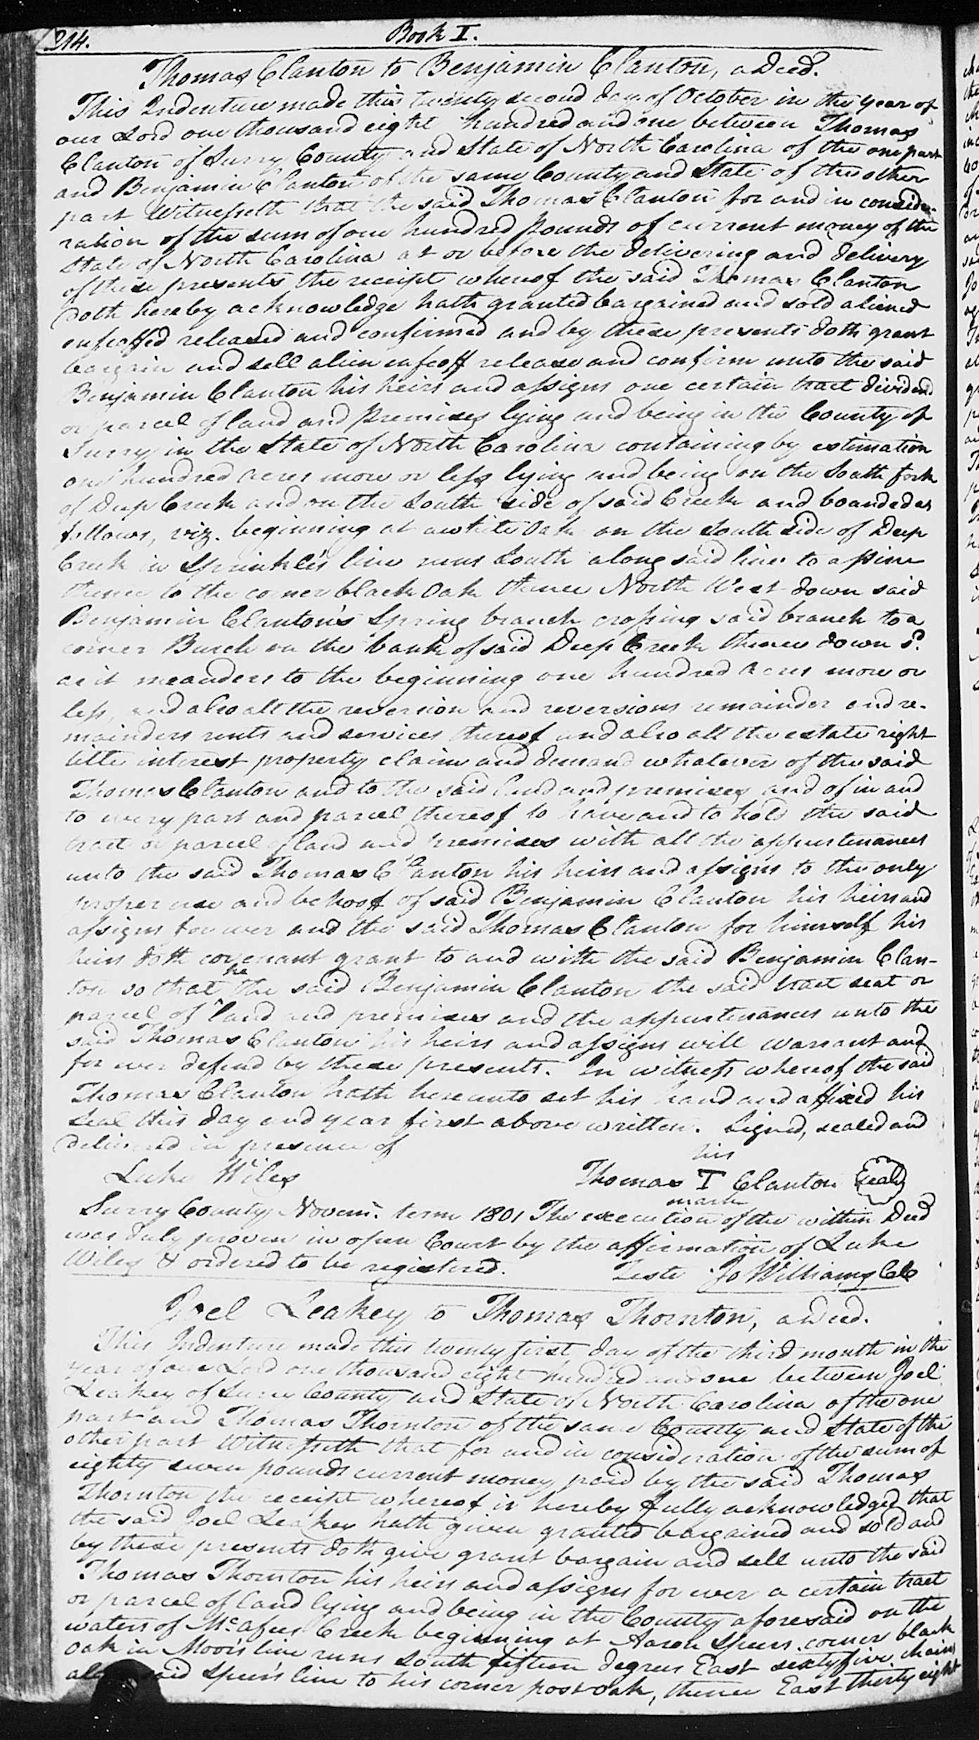 214.
Book I.
Thomas Clanton to Benjamin Clanton, a Deed.
This Indenture made this twenty second day of October in the year of
our Lord one thousand eight hundred and one between Thomas
Clanton of Surry County and State of North Carolina of the one part
and Benjamin Clanton of the same County and State of the other
part Witnesseth that the said Thomas Clanton for and in conside-
ration of the sum of one hundred pounds of current money of the
State of North Carolina at or before the delivering and delivery
of these presents the receipt whereof the said Thomas Clanton
doth hereby acknowledge hath granted bargained and sold aliened
enfeoffed released and confirmed and by these presents doth grant
bargain and sell alien enfeoff release and confirm unto the said
Benjamin Clanton his heirs and assigns one certain tract dividend
or parcel of land and premises lying and being in the County of
Surry in the State of North Carolina containing by estimation
one hundred acres more or less lying and being on the South fork
of Deep Creek and on the South side of said Creek and boanded as
follows, viz. beginning at a white Oak on the South side of Deep
Creek in Sprinkle's line runs South along said line to a pine
thence to the corner black Oak thence North West down said
Benjamin Clanton's Spring branch crossing said branch to a
corner Burch on the bank of said Deep Creek thence down sd.
as it meanders to the beginning one hundred acres more or
less, and also all the reversion and reversions remainder and re-
mainders rents and services thereof and also all the estate right
title interest property claim and demand whatever of the said
Thomas Clanton and to the said land and premises and of in and
to every part and parcel thereof to have and to hold the said
tract or parcel of land and premises with all the appurtenances
unto the said Thomas Clanton his heirs and assigns to the only
proper use and behoof of said Benjamin Clanton his heirs and
assigns for ever and the said Thomas Clanton for himself his
heirs doth covenant grant to and with the said Benjamin Clan-
ton so that he the said Benjamin Clanton the said tract seat or
parcel of land and premises and the appurtenances unto the
said Thomas Clanton his heirs and assigns will warrant and
for ever defend by these presents. In witness whereof the said
Thomas Clanton hath hereunto set his hand and affixed his
seal this day and year first above written. Signed, sealed and
delivered in presence of
his
Luke Wiles Thomas I Clanton Seal
mark
Surry County Novem. term 1801 The execution of the within Deed
was duly proven in open Court by the affirmation of Luke
Wiles & ordered to be registered. Teste Jo Williams CC
Joel Leakey to Thomas Thornton, a Deed.
This Indenture made this twenty first day of the third month in the
year of our Lord one thousand eight hundred and one between Joel
Leakey of Surry County and State of North Carolina of the one
part and Thomas Thornton of the same County and State of the
other part Witnesseth that for and in consideration of the sum of
eighty seven pounds current money paid by the said Thomas
Thornton the receipt whereof is hereby fully acknowledged that
the said Joel Leakey hath given granted bargained and sold and
by these presents doth give grant bargain and sell unto the said
Thomas Thornton his heirs and assigns for ever a certain tract
or parcel of land lying and being in the County aforesaid on the
waters of McAfees Creek beginning at Aaron Speers corner black
Oak in Moors line runs South fifteen degrees East sixty five chains
along said Speers line to his corner post oak, thence East thirty eight